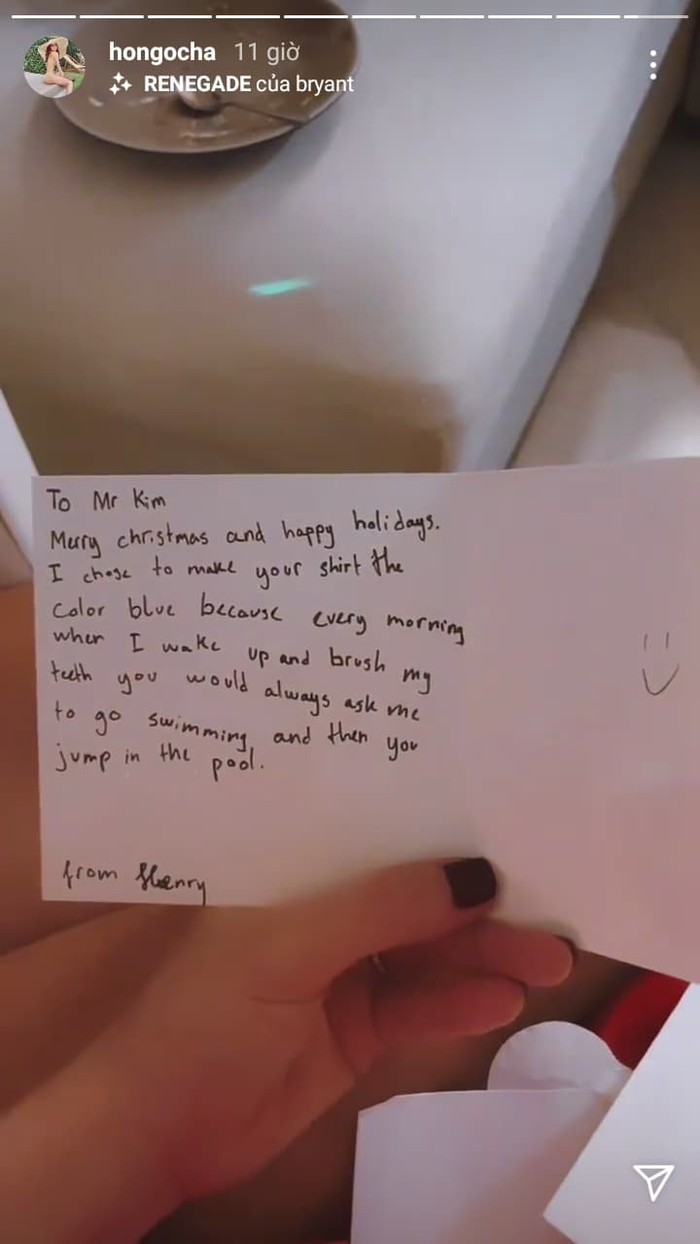 hongocha 11 giờ
RENEGADE của bryant
To Mr Kim
Merry christmas and happy holidays.
I chose to make your shirt the
color blue because every morning
when I wake up and brush my
teeth you would always ask me
to go swimming, and then you
jump in the pool.
from Henry